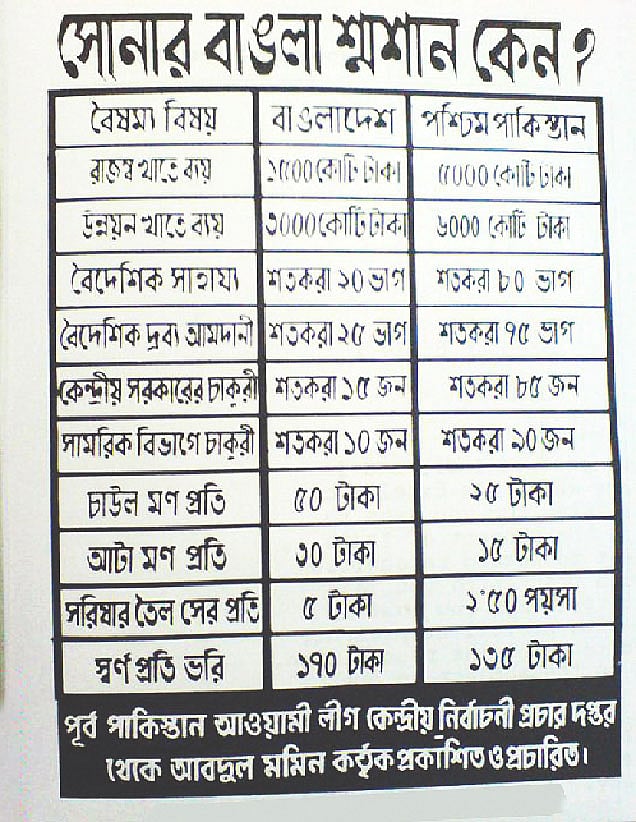 সোনার বাঙলা শ্মশান কেন?
বৈষম্য বিষয় বাঙলাদেশ পশ্চিম পাকিস্তান
রাজস্ব খাতে ব্যয় ১৫০০ কোটি টাকা ৫০০০ কোটি টাকা
উন্নয়ন খাতে ব্যয় ৩০০০ কোটি টাকা ৬০০০ কোটি টাকা
বৈদেশিক সাহায্য শতকরা ২০ ভাগ শতকরা ৮০ ভাগ
বৈদেশিক দ্রব্য আমদানী শতকরা ২৫ ভাগ শতকরা ৭৫ ভাগ
কেন্দ্রীয় সরকারের চাকুরী শতকরা ১৫ জন শতকরা ৮৫ জন
সামরিক বিভাগে চাকুরী শতকরা ১০ জন শতকরা ৯০ জন
চাউল মণ প্রতি ৫০ টাকা ২৫ টাকা
আটা মণ প্রতি ৩০ টাকা ১৫ টাকা
সরিষার তৈল সের প্রতি ৫ টাকা ২'৫০ পয়সা
স্বর্ণ প্রতি ভরি ১৭০ টাকা ১৩৫ টাকা
পূর্ব পাকিস্তান আওয়ামী লীগ কেন্দ্রীয় নির্বাচনী প্রচার দপ্তর
থেকে আবদুল মমিন কর্তৃক প্রকাশিত ও প্রচারিত।